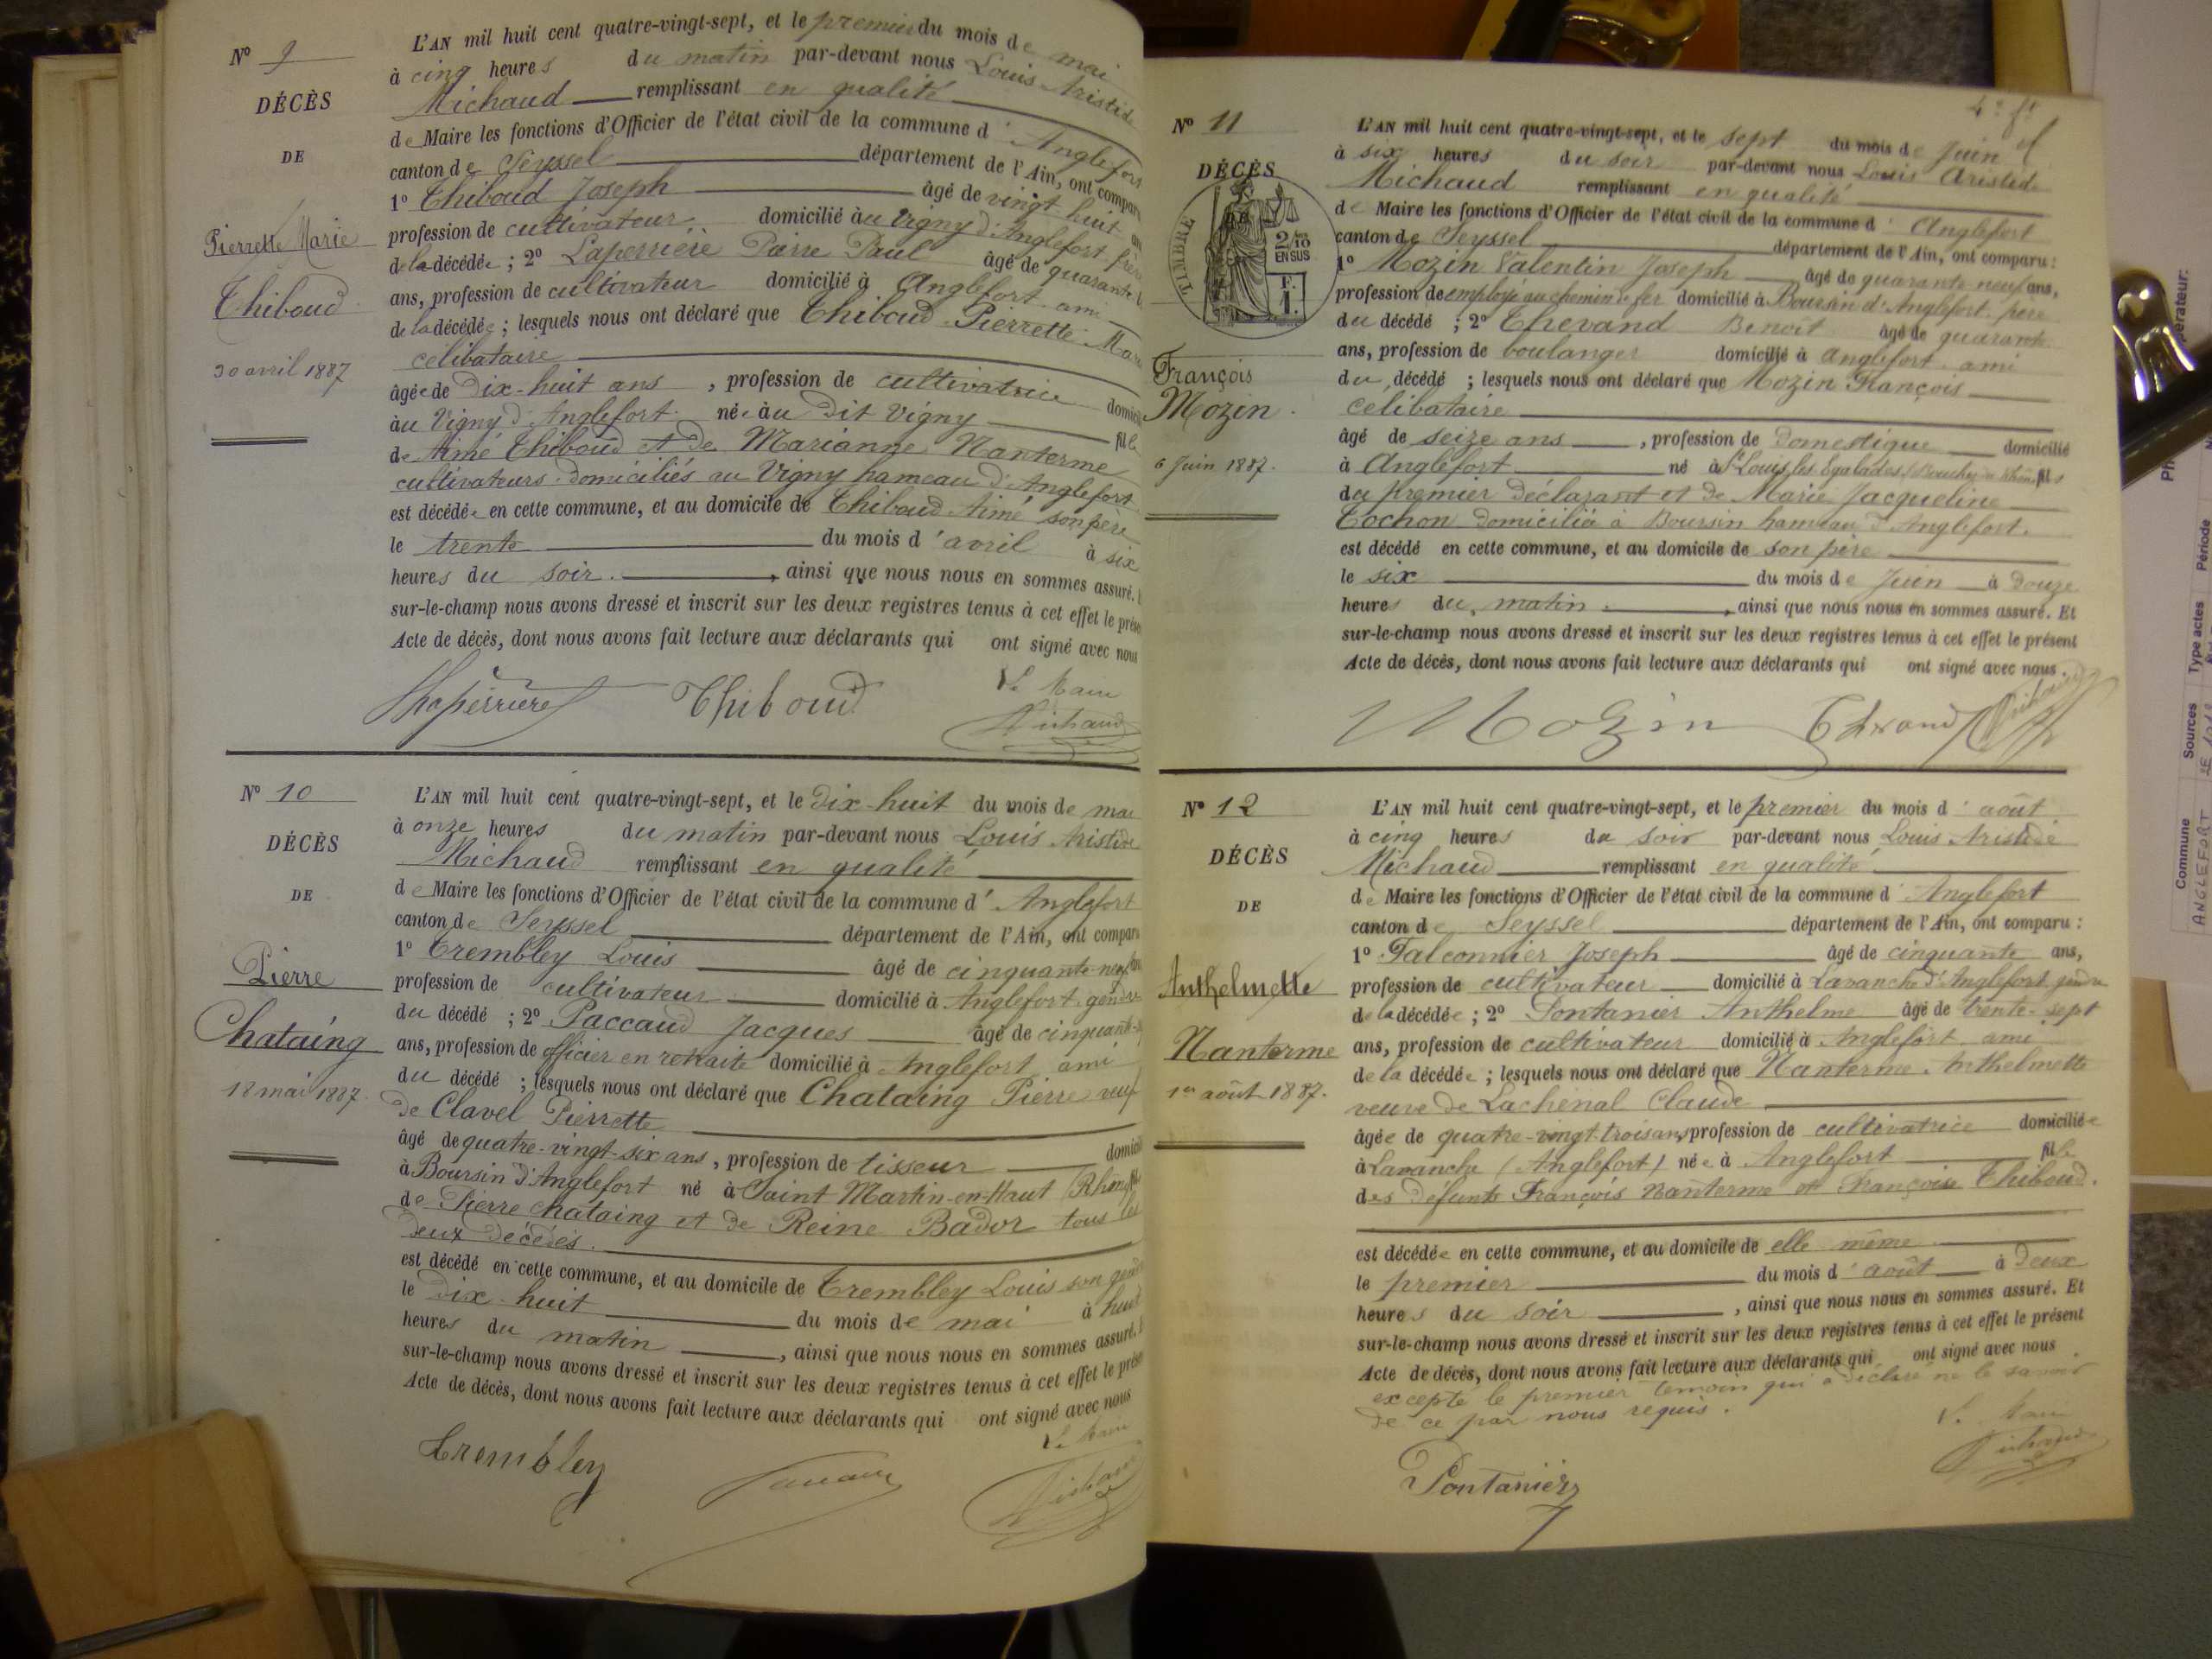 N° 9
DÉCÈS
DE
Pierrette Marie
Thiboud
30 avril 1887
L'AN mil huit cent quatre-vingt-sept, et le premier du mois de mai
à cinq heures du matin par-devant nous Louis Aristide
Michaud remplissant en qualité
de Maire les fonctions d'Officier de l'état civil de la commune d'Anglefort
canton de Seyssel département de l'Ain, ont comparu
1° Thiboud Joseph âgé de vingt-huit
profession de cultivateur domicilié au Vigny d'Anglefort frère
de la décédée ; 2° Laperrière Pierre Paul âgé de quarante
ans, profession de cultivateur domicilié à Anglefort ami
de la décédée ; lesquels nous ont déclaré que Thiboud Pierrette Marie
celibataire
âgée de dix-huit ans , profession de cultivatrice
au Vigny d'Anglefort née au dit Vigny fille
de Aimé Thiboud et de Marianne Nanterme
cultivateurs domiciliés au Vigny hameau d'Anglefort
est décédée en cette commune, et au domicile de Thiboud Aimé son père
le trente du mois d'avril à six
heures du soir. , ainsi que nous nous en sommes assuré.
sur-le-champ nous avons dressé et inscrit sur les deux registres tenus à cet effet le
Acte de décès, dont nous avons fait lecture aux déclarants qui ont signé avec nous
Laperrière Thiboud Le Maire
Michaud
N° 10
DÉCÈS
DE
Pierre
Chataing
18 mai 1887.
L'AN mil huit cent quatre-vingt-sept, et le dix-huit du mois de mai
à onze heures du matin par-devant nous Louis Aristide
Michaud remplissant en qualité
de Maire les fonctions d'Officier de l'état civil de la commune d'Anglefort
canton de Seyssel département de l'Ain, ont comparu
1° Trembley Louis âgé de cinquante-neuf
profession de cultivateur domicilié à Anglefort gendre
du décédé ; 2° Paccaud Jacques âgé de cinquante
ans, profession de officier en retraite domicilié à Anglefort ami
du décédé ; lesquels nous ont déclaré que Chataing Pierre veuf
de Clavel Pierrette
âgé de quatre-vingt-six ans , profession de tisseur
à Boursin d'Anglefort né à Saint Martin-en-Haut (Rhône)
de Pierre Chataing et de Reine Bador tous les
deux décédés.
est décédé en cette commune, et au domicile de Trembley Louis son gendre
le dix-huit du mois de mai à huit
heures du matin , ainsi que nous nous en sommes assuré.
sur-le-champ nous avons dressé et inscrit sur les deux registres tenus à cet effet le
Acte de décès, dont nous avons fait lecture aux déclarants qui ont signé avec nous
Le Maire
Trembley Paccaud Michaud
N° 11
DÉCÈS
TIMBRE
2/10
EN SUS
F.
1.
François
Mozin.
6 Juin 1887.
L'AN mil huit cent quatre-vingt-sept, et le sept du mois de Juin
à six heures du soir par-devant nous Louis Aristide
Michaud remplissant en qualité
de Maire les fonctions d'Officier de l'état civil de la commune d'Anglefort
canton de Seyssel département de l'Ain, ont comparu :
1° Mozin Valentin Joseph âgé de quarante neuf ans,
profession de employé au chemin de fer domicilié à Boursin d'Anglefort père
du décédé ; 2° Thevand Benoît âgé de quarante
ans, profession de boulanger domicilié à Anglefort ami
du décédé ; lesquels nous ont déclaré que Mozin François
celibataire
âgé de seize ans , profession de domestique domicilié
à Anglefort né à St Louis les Egalades (Bouches du Rhône) fils
du premier déclarant et de Marie Jacqueline
Cochon domiciliés à Boursin hameau d'Anglefort.
est décédé en cette commune, et au domicile de son père
le six du mois de Juin à douze
heures du matin. , ainsi que nous nous en sommes assuré. Et
sur-le-champ nous avons dressé et inscrit sur les deux registres tenus à cet effet le présent
Acte de décès, dont nous avons fait lecture aux déclarants qui ont signé avec nous.
Mozin Thevand Michaud
N° 12
DÉCÈS
DE
Anthelmette
Nanterme
1er août 1887.
L'AN mil huit cent quatre-vingt-sept, et le premier du mois d'août
à cinq heures du soir par-devant nous Louis Aristide
Michaud remplissant en qualité
de Maire les fonctions d'Officier de l'état civil de la commune d'Anglefort
canton de Seyssel département de l'Ain, ont comparu :
1° Falconnier Joseph âgé de cinquante ans,
profession de cultivateur domicilié à Lavanche d'Anglefort gendre
de la décédée ; 2° Pontanier Anthelme âgé de trente-sept
ans, profession de cultivateur domicilié à Anglefort ami
de la décédée ; lesquels nous ont déclaré que Nanterme Anthelmette
veuve de Lachenal Claude
âgée de quatre-vingt-trois ans, profession de cultivatrice domiciliée
à Lavanche (Anglefort) née à Anglefort fille
des défunts François Nanterme et Françoise Thiboud.
est décédée en cette commune, et au domicile de elle même
le premier du mois d'août à deux
heures du soir , ainsi que nous nous en sommes assuré. Et
sur-le-champ nous avons dressé et inscrit sur les deux registres tenus à cet effet le présent
Acte de décès, dont nous avons fait lecture aux déclarants qui ont signé avec nous
excepté le premier temoin qui a déclaré ne le savoir
de ce par nous requis.
Le Maire
Pontanier Michaud
Commune
Sources
Type actes
Période
ANGLEFORT